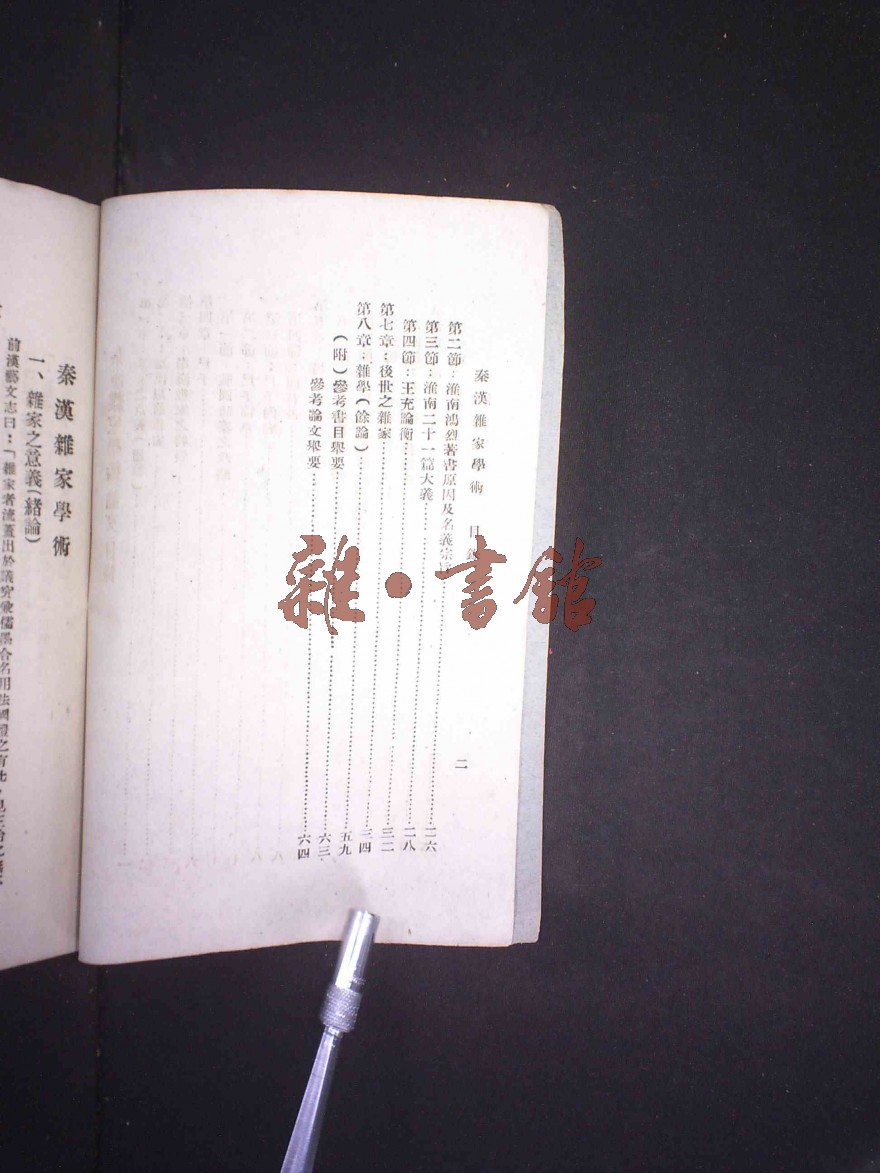 秦漢雜家學術 目錄 二
第二節：淮南鴻烈著書原因及名義宗旨……二六
第三節：淮南二十一篇大義……二八
第四節：王充論衡……三二
第七章：後世之雜家……三四
第八章：雜學（餘論）……五九
（附）參考書目舉要……六三
參考論文舉要……六四
秦漢雜家學術
一、雜家之意義（緒論）
前漢藝文志曰：「雜家者流蓋出於議官兼儒墨合名用法國體之有此，見王治之
雜·書館